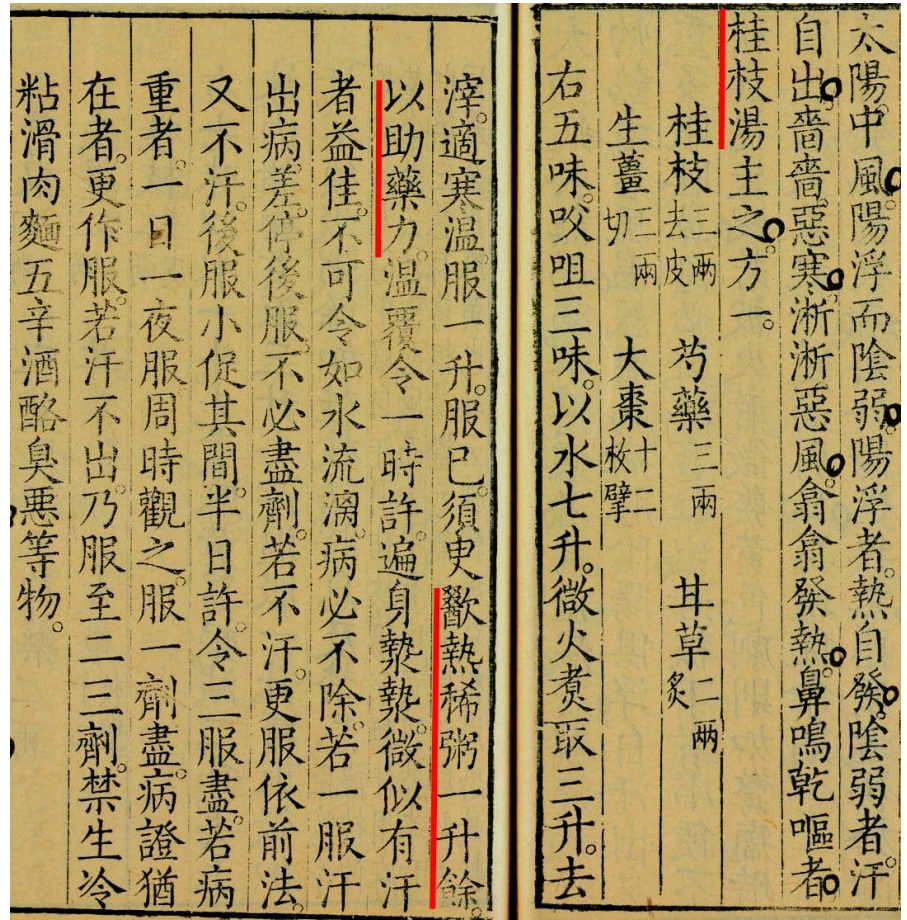 太陽中風。陽浮而陰弱。陽浮者。熱自發。陰弱者。汗
自出。嗇嗇惡寒。淅淅惡風。翕翕發熱。鼻鳴乾嘔者。
桂枝湯主之。方一。
桂枝三兩去皮 芍藥三兩 甘草二兩炙
生薑三兩切 大棗十二枚擘
右五味。㕮咀三味。以水七升。微火煮取三升。去
滓。適寒溫。服一升。服已。須臾歠熱稀粥一升餘。
以助藥力。溫覆令一時許。遍身漐漐。微似有汗
者益佳。不可令如水流漓。病必不除。若一服汗
出病差。停後服。不必盡劑。若不汗。更服依前法。
又不汗。後服小促其間。半日許。令三服盡。若病
重者。一日一夜服周時觀之。服一劑盡。病證猶
在者。更作服。若汗不出。乃服至二三劑。禁生冷
粘滑肉麵五辛酒酪臭惡等物。